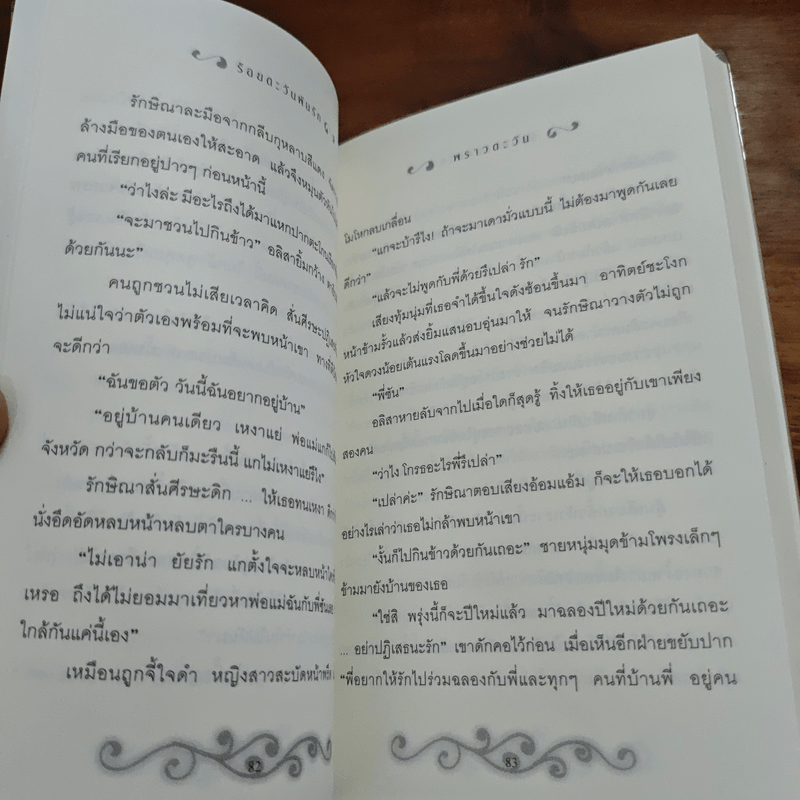 ร้อยตะวันพันรัก
รักษิณาละมือจากกลีบกุหลาบสีแดง
ล้างมือของตนเองให้สะอาด แล้วจึงหมุนตัว
คนที่เรียกอยู่ปาวๆ ก่อนหน้านี้
“ว่าไงล่ะ มีอะไรถึงได้มาแหกปากตะโกน
“จะมาชวนไปกินข้าว” อลิสายิ้มกว้าง
ด้วยกันนะ”
คนถูกชวนไม่เสียเวลาคิด สั่นศีรษะปฏิเสธ
ไม่แน่ใจว่าตัวเองพร้อมที่จะพบหน้าเขา ทางที่ดี
จะดีกว่า
“ฉันขอตัว วันนี้ฉันอยากอยู่บ้าน”
“อยู่บ้านคนเดียว เหงาแย่ พ่อแม่แกก็ไป
จังหวัด กว่าจะกลับก็มะรืนนี้ แกไม่เหงาแย่รึไง”
รักษิณาสั่นศีรษะดิก ... ให้เธอทนเหงา
นั่งอึดอัดหลบหน้าหลบตาใครบางคน
“ไม่เอาน่า ยัยรัก แกตั้งใจจะหลบหน้า
เหรอ ถึงได้ไม่ยอมมาเที่ยวหาพ่อแม่ฉันกับพี่ชัน
ใกล้กันแค่นี้เอง”
เหมือนถูกจี้ใจดำ หญิงสาวสะบัดหน้าพรืด
82
พราวตะวัน
โมโหกลบเกลื่อน
“แกจะบ้ารึไง! ถ้าจะมาเดามั่วแบบนี้ ไม่ต้องมาพูดกันเลย
ดีกว่า”
“แล้วจะไม่พูดกับพี่ด้วยรึเปล่า รัก”
เสียงทุ้มนุ่มที่เธอจำได้ขึ้นใจดังซ้อนขึ้นมา อาทิตย์ชะโงก
หน้าข้ามรั้วแล้วส่งยิ้มแสนอบอุ่นมาให้ จนรักษิณาวางตัวไม่ถูก
หัวใจดวงน้อยเต้นแรงโลดขึ้นมาอย่างช่วยไม่ได้
“พี่ซัน”
อลิสาหายลับจากไปเมื่อใดก็สุดรู้ ทิ้งให้เธออยู่กับเขาเพียง
สองคน
“ว่าไง โกรธอะไรพี่รึเปล่า”
“เปล่าค่ะ” รักษิณาตอบเสียงอ้อมแอ้ม ก็จะให้เธอบอกได้
อย่างไรเล่าว่าเธอไม่กล้าพบหน้าเขา
“งั้นก็ไปกินข้าวด้วยกันเถอะ” ชายหนุ่มมุดข้ามโพรงเล็กๆ
ข้ามมายังบ้านของเธอ
“ใช่สิ พรุ่งนี้ก็จะปีใหม่แล้ว มาฉลองปีใหม่ด้วยกันเถอะ
... อย่าปฏิเสธนะรัก” เขาดักคอไว้ก่อน เมื่อเห็นอีกฝ่ายขยับปาก
“พี่อยากให้รักไปร่วมฉลองกับพี่และทุกๆ คนที่บ้านพี่ อยู่คน
83